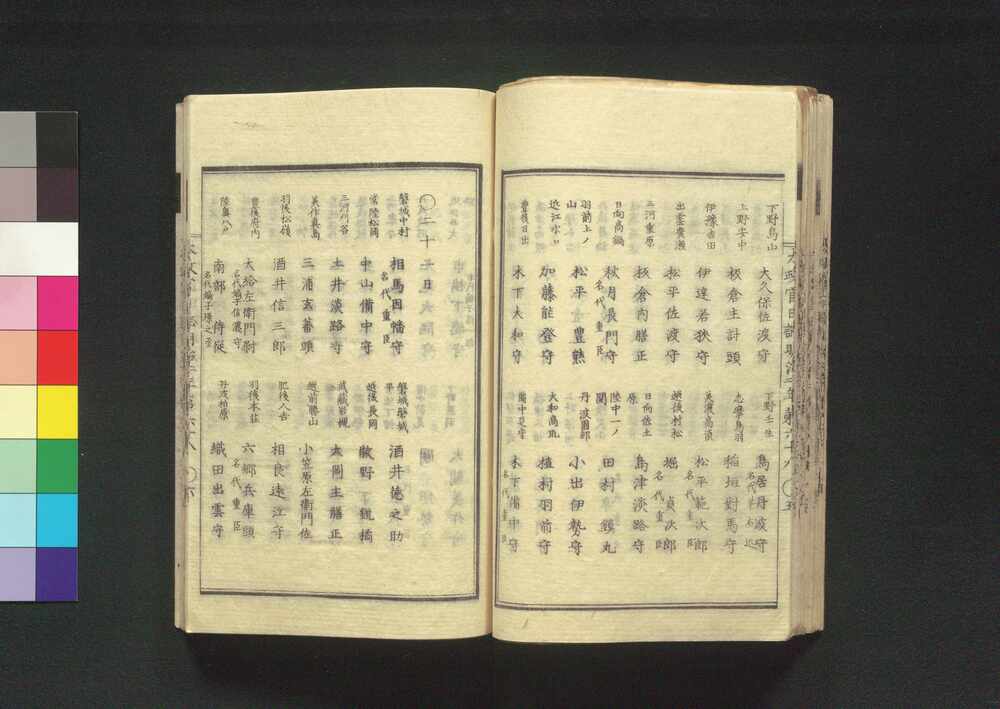 下野烏山　大久保佐渡守
下野壬生　鳥居丹波守
名代　右近
上野安中　板倉主計頭
志摩鳥羽　稲垣對馬守
伊豫吉田　伊達若狭守
美濃高須　松平範次郎
名代重臣
出雲廣瀬　松平佐渡守
越後村松　堀　貞次郎
名代重臣
三河重原　板倉内膳正
日向佐土原　島津淡路守
日向高鍋　秋月長門守
名代重臣
陸中一ノ関　田村　鎮丸
羽前上ノ山　松平　豊熊
丹波園部　小出伊勢守
近江水口　加藤能登守
大和高取　植村羽前守
豊後日出　木下大和守
備中足守　木下備中守
名代重臣
太政官日誌明治二年第六十八　五
〇二十一日
磐城中村　相馬因幡守
名代重臣
磐城磐城平　酒井徳之助
常陸松岡　中山備中守
越後長岡　牧野　鋭橘
三河刈谷　土井淡路守
武蔵岩槻　大岡主膳正
美作真島　三浦玄蕃頭
越前勝山　小笠原左衛門佐
羽後松嶺　酒井信三郎
肥後人吉　相良遠江守
豊後府内　大給左衛門尉
名代嫡子信濃守
羽後本荘　六郷兵庫頭
名代重臣
陸奥八戸　南部　侍従
丹波柏原　織田出雲守